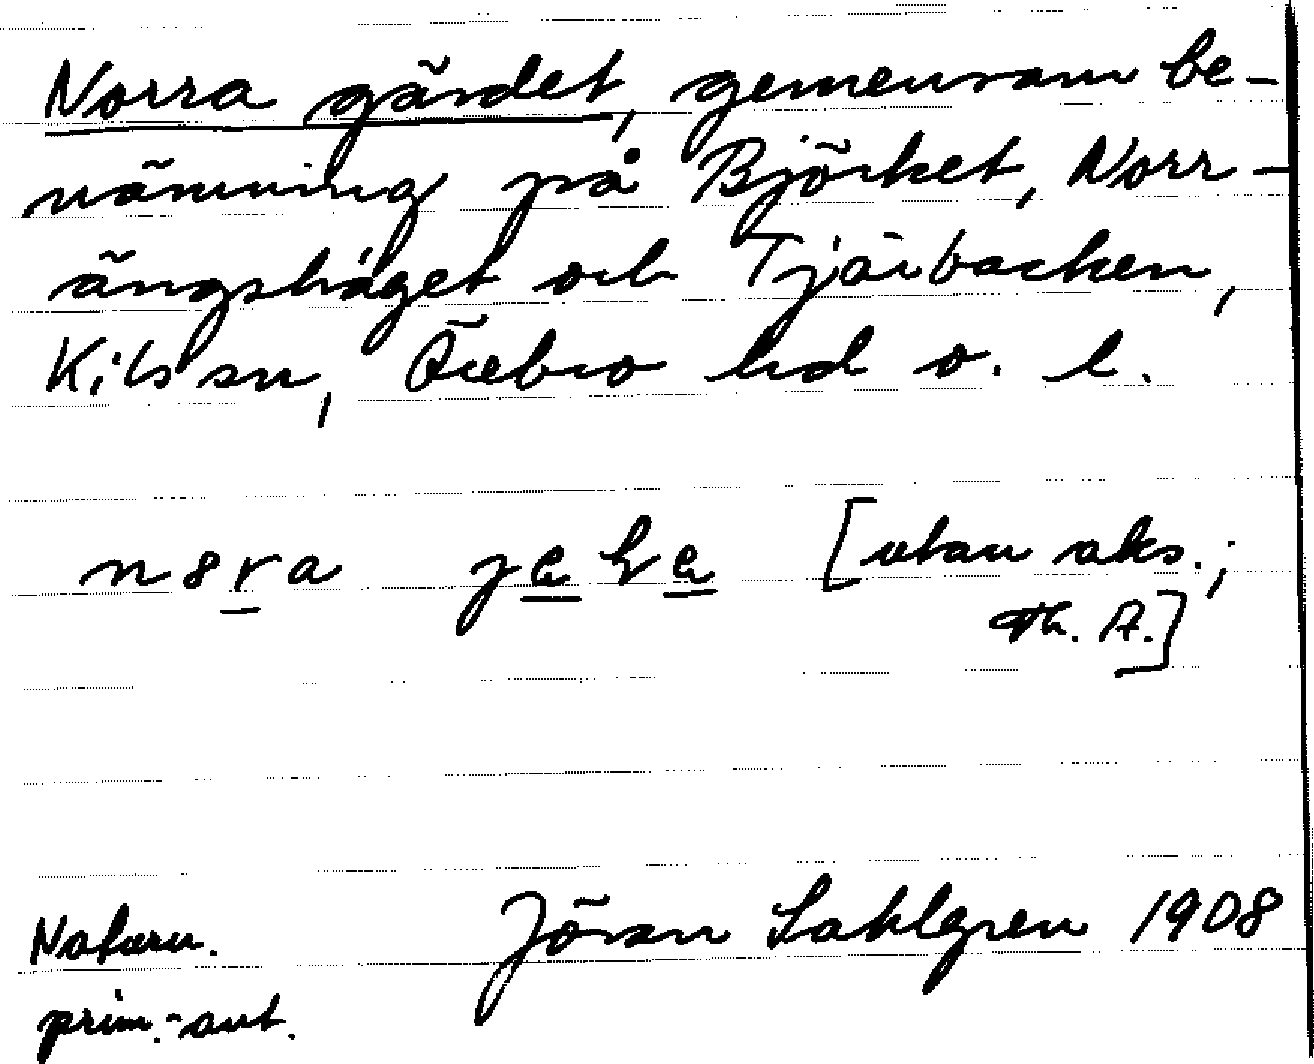 Norra gärdet, gemensam be-
nämning på Björket, Norr-
ängshaget och Tjärbacken,
Kils sn, Örebro hd o. l.
[utan aks.;
Th. A.]
Naturn. Jöran Sahlgren 1908
prim.-ant.